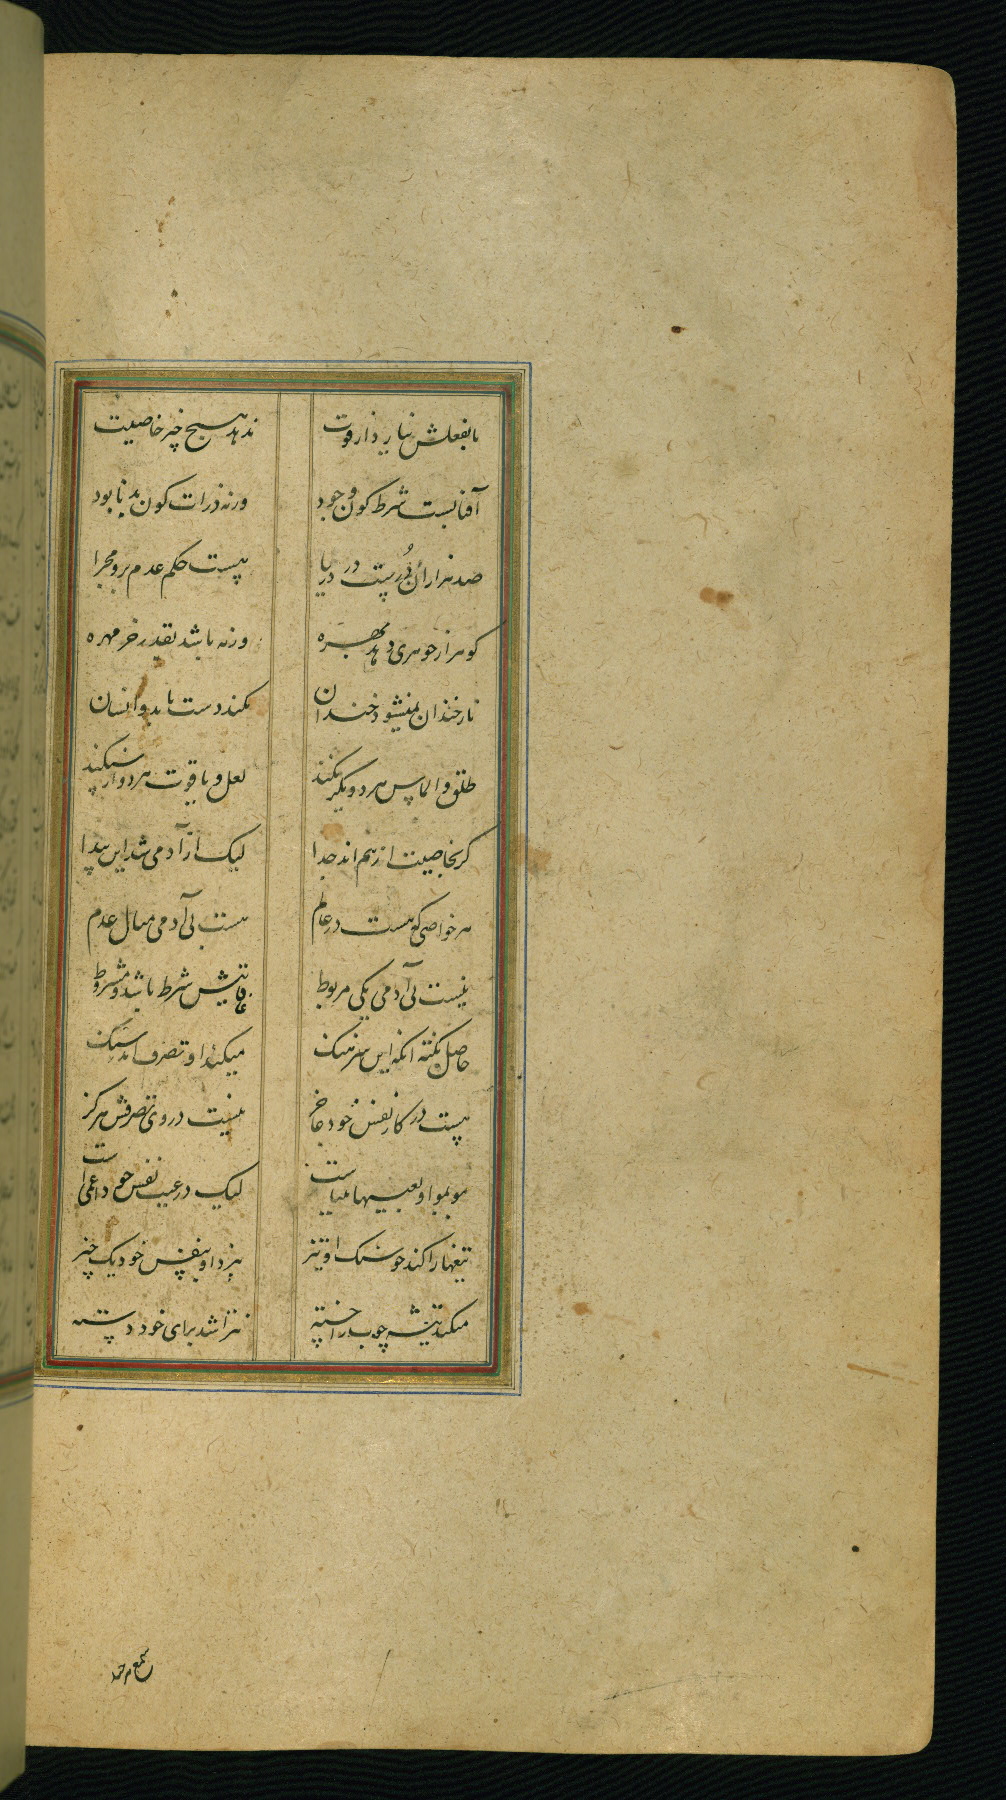 تا بفعلش نیارد از قوت ندهد هیچ چیز خاصیت
آفتابست شرط کون وجود ورنه ذرات کون بد نابود
صد هزاران دُر است در دریا هست حکم عدم برو مجرا
گوهر از جوهری دهد بهره ورنه باشد بقدر خرمهره
نار خندان نمیشود خندان نکند دست تا بدو انسان
طلق و الماس هر دو یکرنگند لعل و یاقوت هر دو از سنگند
گر بخاصیت از هم اند جدا لیک از آدمی شد این پیدا
هر خواصی که هست در عالم هست بی آدمی مثال عدم
نیست بی آدمی یکی مربوط شرط باشد و مشروط
حاصل نکته انکه این سرهنک میکند او تصرف اندر سنک
هست در کار نفس خود عاجز نیست در وی تصرفش هرکز
موبمو او بعیبها بیناست لیک در عیب نفس خود اعمی است
تیغها را کند چو سنک او تیز نبرد او بنفس خود یک چیز
میکند تیشه چوب را خسته نتراشد برای خود دسته